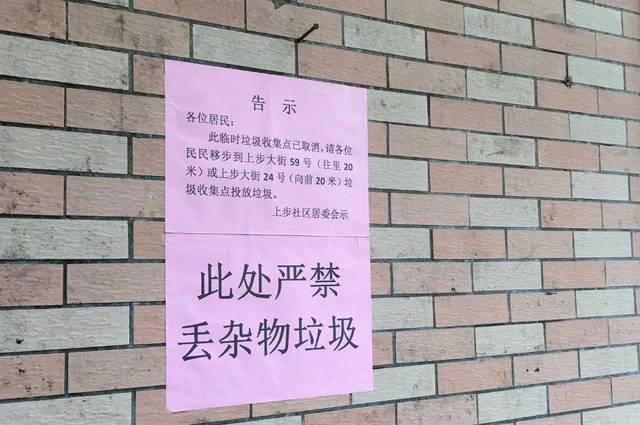 告 示
各位居民：
此临时垃圾收集点已取消，请各位
民民移步到上步大街 59 号（往里 20
米）或上步大街 24 号（向前 20 米）垃
圾收集点投放垃圾。
上步社区居委会示
此处严禁
丢杂物垃圾